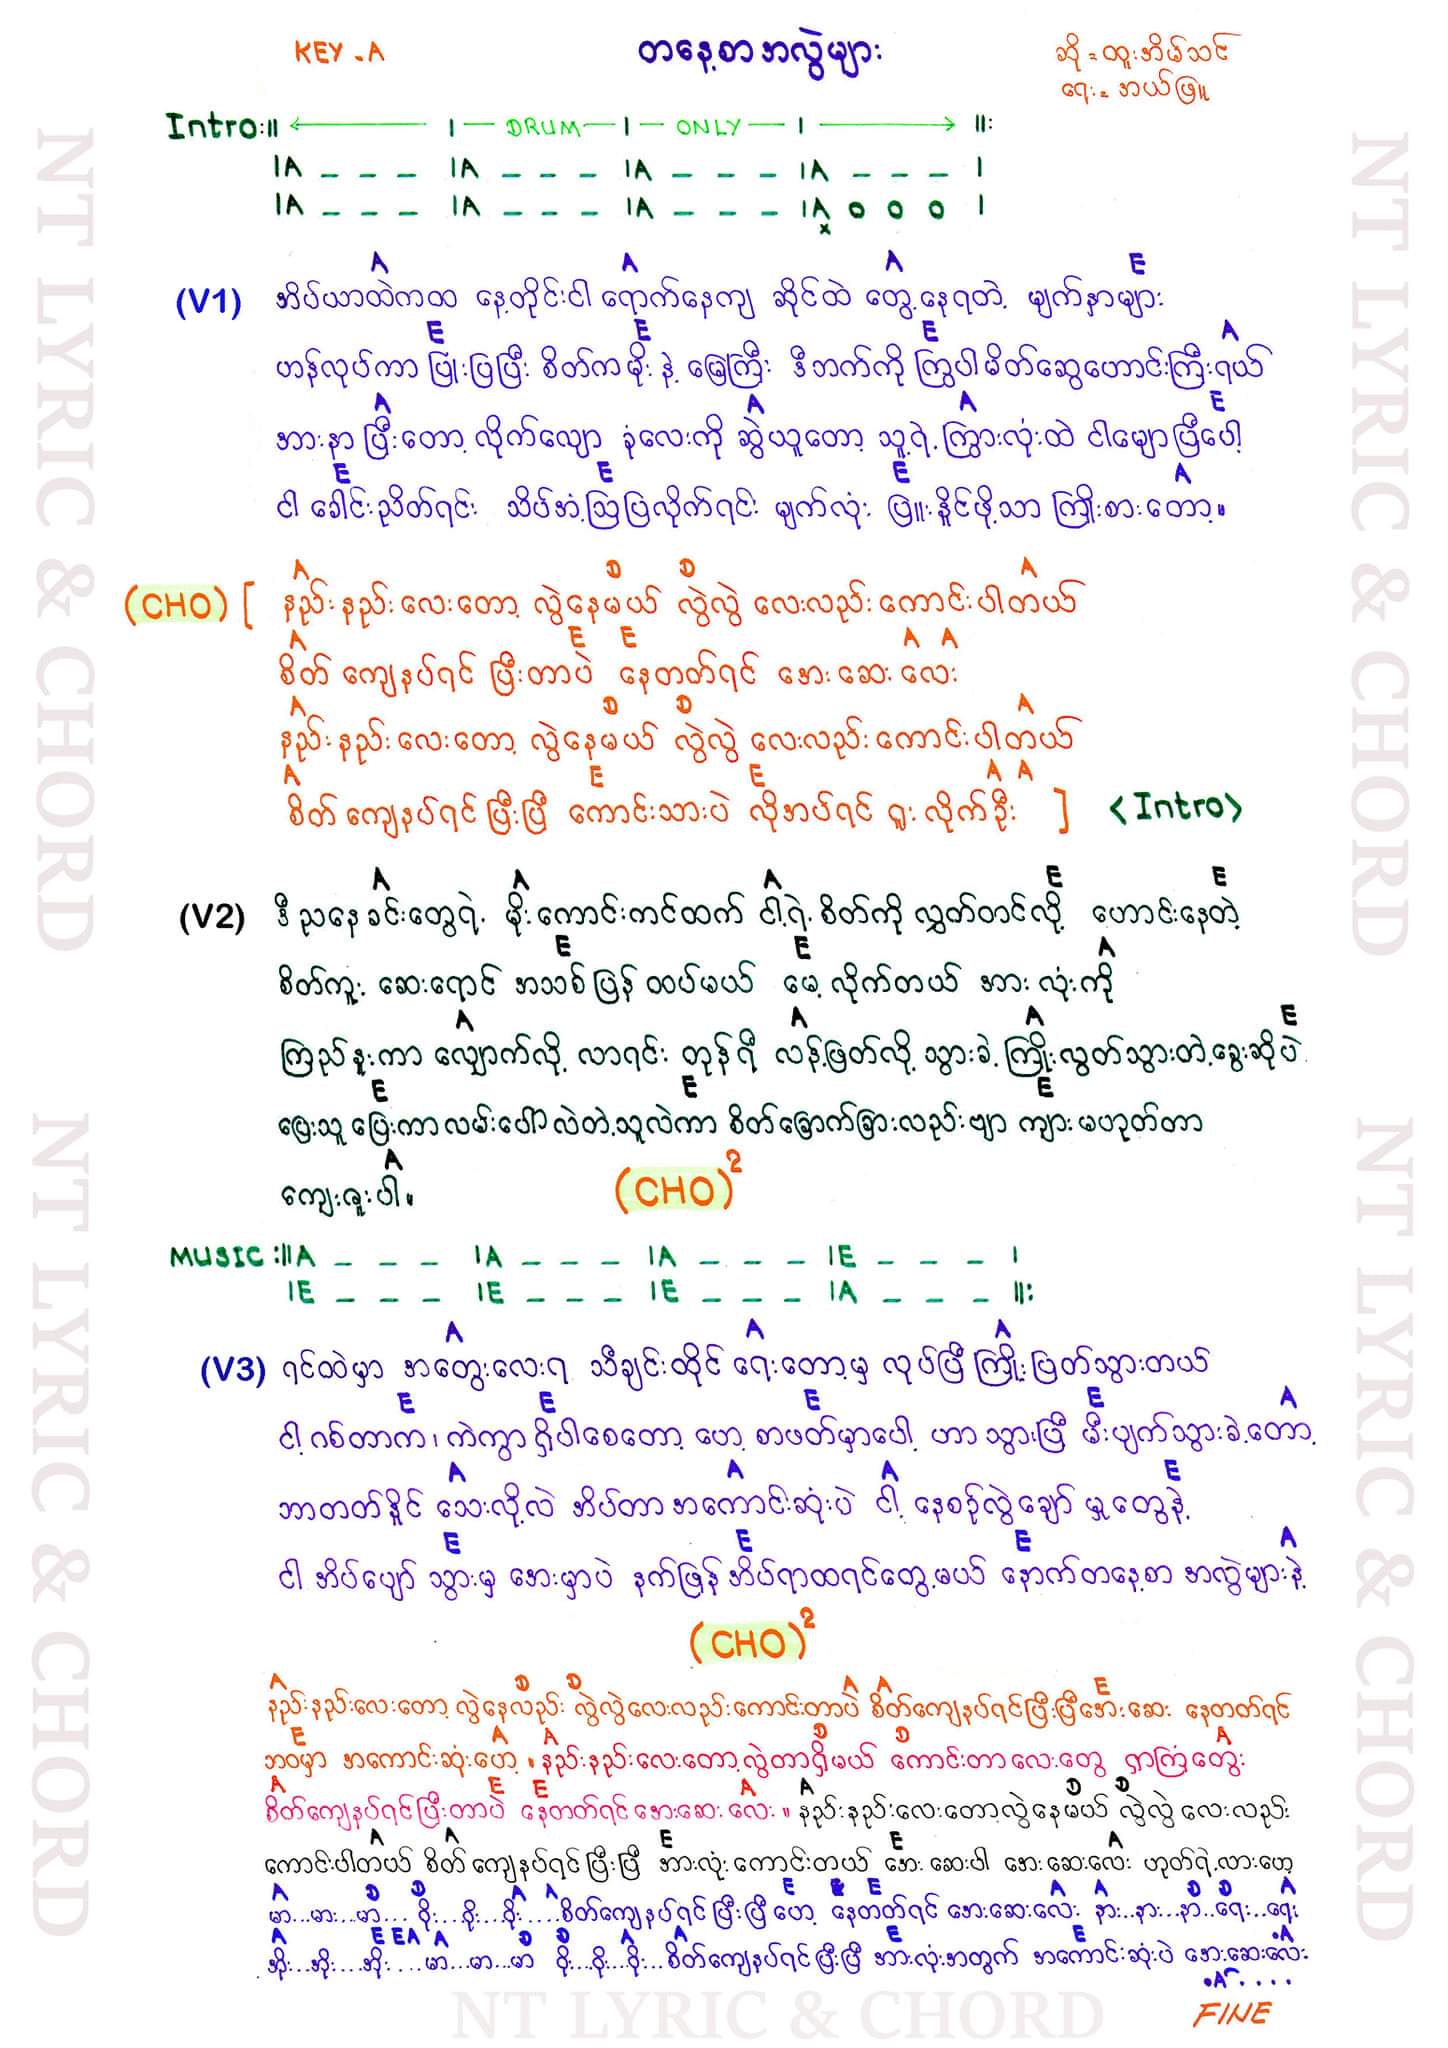 KEY - A
တနေ့စာအလွဲများ
ဆို = ထူးအိမ်သင်
ရေး = အယ်ဖြူ
Intro :|| ← | — DRUM — | — ONLY — | → ||:
|A _ _ _ |A _ _ _ |A _ _ _ |A _ _ _ |
|A _ _ _ |A _ _ _ |A _ _ _ |A o o o |
x
A A A E
(V1) အိပ်ယာထဲကထ နေ့တိုင်းငါ ရောက်နေကျ ဆိုင်ထဲ တွေ့နေရတဲ့ မျက်နှာများ
E E E A
ဟန်လုပ်ကာ ပြုံးပြပြီး စိတ်က မိုး နဲ့ မြေကြီး ဒီဘက်ကို ကြွပါမိတ်ဆွေဟောင်းကြီးရယ်
A A A E
အားနာ ပြီးတော့ လိုက်လျော ခုံလေးကို ဆွဲယူတော့ သူ့ရဲ့ ကြွားလုံးထဲ ငါမျောပြီပေါ့
E E E A
ငါ ခေါင်းညိတ်ရင်း သိပ်အံ့ဩပြလိုက်ရင်း မျက်လုံး ပြူးနိုင်ဖို့သာ ကြိုးစားတော့။
A D D A
(CHO) [ နည်းနည်းလေးတော့ လွဲနေမယ် လွဲလွဲ လေးလည်း ကောင်းပါတယ်
A E E A A
စိတ် ကျေနပ်ရင် ပြီးတာပဲ နေတတ်ရင် အေးဆေး လေး
A D D A
နည်းနည်းလေးတော့ လွဲနေမယ် လွဲလွဲ လေးလည်း ကောင်းပါတယ်
A E E A A
စိတ် ကျေနပ်ရင် ပြီးပြီ ကောင်းသားပဲ လိုအပ်ရင် ရူး လိုက်ဦး ] <Intro>
A A A E E
(V2) ဒီ ညနေခင်းတွေရဲ့ မိုးကောင်းကင်ထက် ငါ့ရဲ့ စိတ်ကို လွှတ်တင်လို့ ဟောင်းနေတဲ့
E E A
စိတ်ကူး ဆေးရောင် အသစ်ပြန် ထပ်မယ် မေ့ လိုက်တယ် အား လုံးကို
A A A E
ကြည်နူးကာ လျှောက်လို့ လာရင်း တုန်ရီ လန့်ဖြတ်လို့ သွားခဲ့ ကြိုးလွတ်သွားတဲ့ခွေးဆိုပဲ
E E E
မြေးသူ ပြေးကာ လမ်းပေါ် လဲတဲ့သူလဲကာ စိတ်ခြောက်ခြားလည်းဗျာ ကျား မဟုတ်တာ
A
ကျေးဇူးပါ။ (CHO)²
MUSIC :||A _ _ _ |A _ _ _ |A _ _ _ |E _ _ _ |
|E _ _ _ |E _ _ _ |E _ _ _ |A _ _ _ ||:
A A A
(V3) ရင်ထဲမှာ အတွေးလေးရ သီချင်းထိုင် ရေးတော့မှ လုပ်ပြီ ကြိုးပြတ်သွားတယ်
E E E E A
ငါ့ ဂစ်တာက၊ ကဲကွာ ရှိပါစေတော့ ဟေ့ စာဖတ်မှာပေါ့ ဟာ သွားပြီ မီးပျက်သွားခဲ့တော့
A A A E
ဘာတတ်နိုင် သေးလို့လဲ အိပ်တာ အကောင်းဆုံးပဲ ငါ့ နေစဉ်လွဲချော် မှုတွေနဲ့
E E E A
ငါ အိပ်ပျော် သွားမှ အေးမှာပဲ နက်ဖြန် အိပ်ရာထရင်တွေ့မယ် နောက်တနေ့စာ အလွဲများနဲ့
(CHO)²
A D D A A E
နည်းနည်းလေးတော့ လွဲနေလည်း လွဲလွဲလေးလည်းကောင်းတာပဲ စိတ်ကျေနပ်ရင်ပြီးပြီအေးဆေး နေတတ်ရင်
E A A D D A
ဘဝမှာ အကောင်းဆုံးဟေ့။ နည်းနည်းလေးတော့လွဲတာရှိမယ် ကောင်းတာလေးတွေ ရှာကြံတွေး
A E E A A D D
စိတ်ကျေနပ်ရင်ပြီးတာပဲ နေတတ်ရင် အေးဆေး လေး။ နည်းနည်းလေးတော့လွဲနေမယ် လွဲလွဲ လေးလည်း
A A E E A
ကောင်းပါတယ် စိတ် ကျေနပ်ရင် ပြီးပြီ အားလုံးကောင်းတယ် အေး ဆေးပါ အေးဆေးလေး ဟုတ်ရဲ့လားဟေ့
A D D A A E E E A A D D A
မာ...မား...မာ.... စိတ်ကျေနပ်ရင် ပြီးပြီ ဟေ့ နေတတ်ရင် အေးဆေးလေး နား...နား...နာ..ရေး...ရေး
A E E A A D D A A E E A
အိုး...အိုး....အိုး....မာ...မာ...မာ စိတ်ကျေနပ်ရင်ပြီးပြီ အားလုံးအတွက် အကောင်းဆုံးပဲ အေးဆေးလေး
.A....
FINE
NT LYRIC & CHORD
NT LYRIC & CHORD
NT LYRIC & CHORD
NT LYRIC & CHORD
NT LYRIC & CHORD